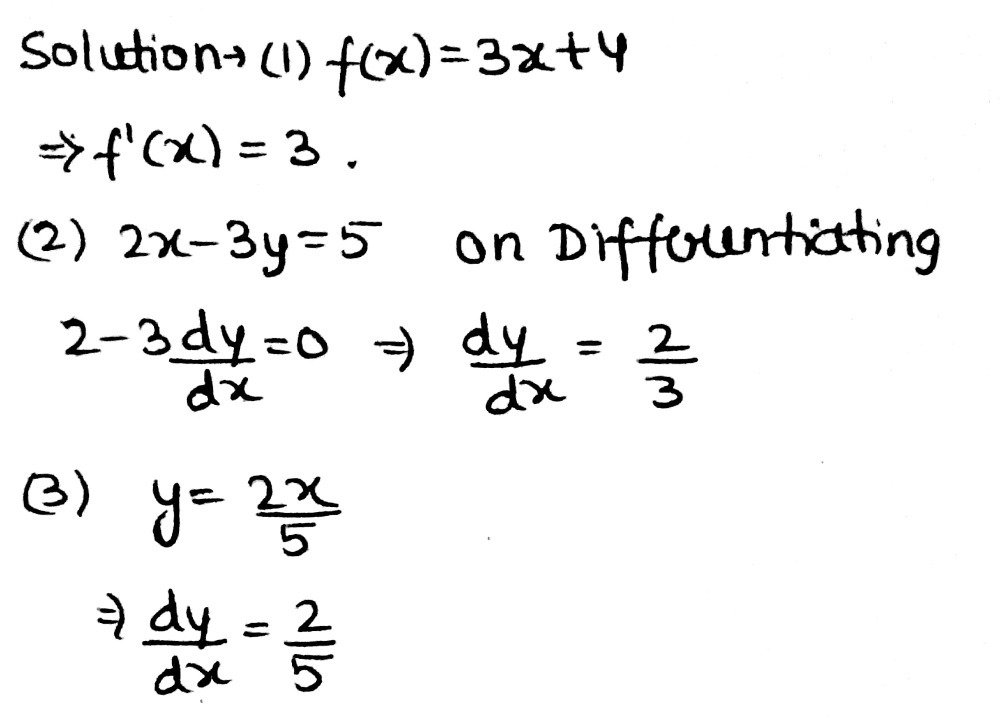 Solution→ (1) f(x) = 3x+4
⇒ f'(x) = 3 .
(2) 2x-3y=5 on Differentiating
2-3 dy/dx = 0 ⇒ dy/dx = 2/3
(3) y = 2x/5
⇒ dy/dx = 2/5